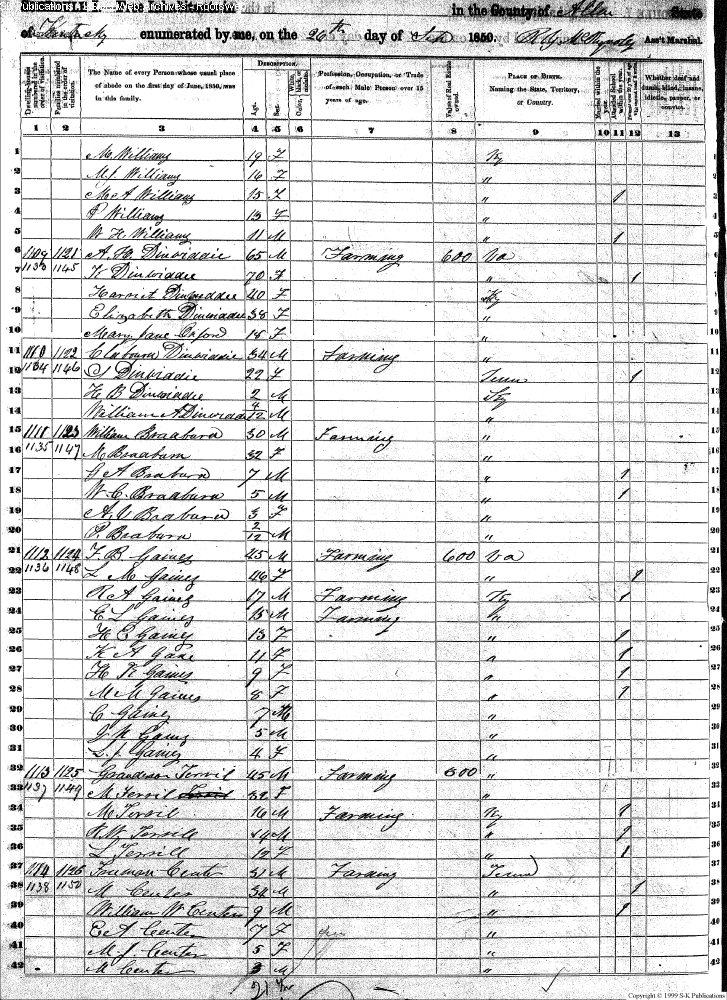 in the County of Allen State
of Kentucky enumerated by me, on the 26th day of 1850. Ass't Marshal.
Dwelling-houses numbered in the order of visitation.
Families numbered in the order of visitation.
The Name of every Person whose usual place of abode on the first day of June, 1850, was in this family.
DESCRIPTION.
Age.
Sex.
Color, White, black, or mulatto.
Profession, Occupation, or Trade of each Male Person over 15 years of age.
Value of Real Estate owned.
PLACE OF BIRTH. Naming the State, Territory, or Country.
Married within the year.
Attended School within the year.
Whether deaf and dumb, blind, insane, idiotic, pauper, or convict.
1 2 3 4 5 6 7 8 9 10 11 12 13
1 M. Williams 19 F Ky
2 M J. Williams 16 F "
3 M A Williams 15 F " 1
4 P Williams 13 F "
5 W H. Williams 11 M " 1
6 1109 1121 A. H. Dinwiddie 65 M Farming 600 Va
7 1133 1145 Dinwiddie 70 F " 1
8 Harriet Dinwiddie 40 F Ky
9 Elizabeth Dinwiddie 38 F "
10 Mary Jane Oxford 18 F "
11 1110 1122 Claburn Dinwiddie 34 M Farming "
12 1134 1146 S Dinwiddie 22 F Tenn 1
13 H B Dinwiddie 2 M Ky
14 William A Dinwiddie 4/12 M "
15 1111 1123 William Braburn 30 M Farming "
16 1135 1147 M Braburn 32 F "
17 J A Braburn 7 M " 1
18 W. C. Braburn 5 M " 1
19 A. V Braburn 3 F "
20 P. Braburn 2/12 M "
21 1112 1124 F B Gaines 45 M Farming 600 Va
22 1136 1148 L M Gaines 46 F " 1
23 R A Gaines 17 M Farming Ky 1
24 E L Gaines 15 M Farming "
25 H E Gaines 13 F " 1
26 K A Gaines 11 F " 1
27 H K Gaines 9 F " 1
28 M M Gaines 8 F " 1
29 C Gaines 7 M "
30 J K Gaines 5 M "
31 S. J Gaines 4 F "
32 1113 1125 Grandison Tervil 45 M Farming 800 "
33 1137 1149 M Tervil 39 F "
34 M Tervil 16 M Farming Ky 1
35 R W Terrill 14 M " 1
36 L Terrill 12 F " 1
37 1114 1126 Freeman Center 31 M Farming Tenn
38 1138 1150 M Center 34 M " 1
39 William W Center 9 M " 1
40 E A Center 7 F "
41 M J Center 5 F "
42 M Center 3 M "
21
Copyright © 1999 S-K Publications